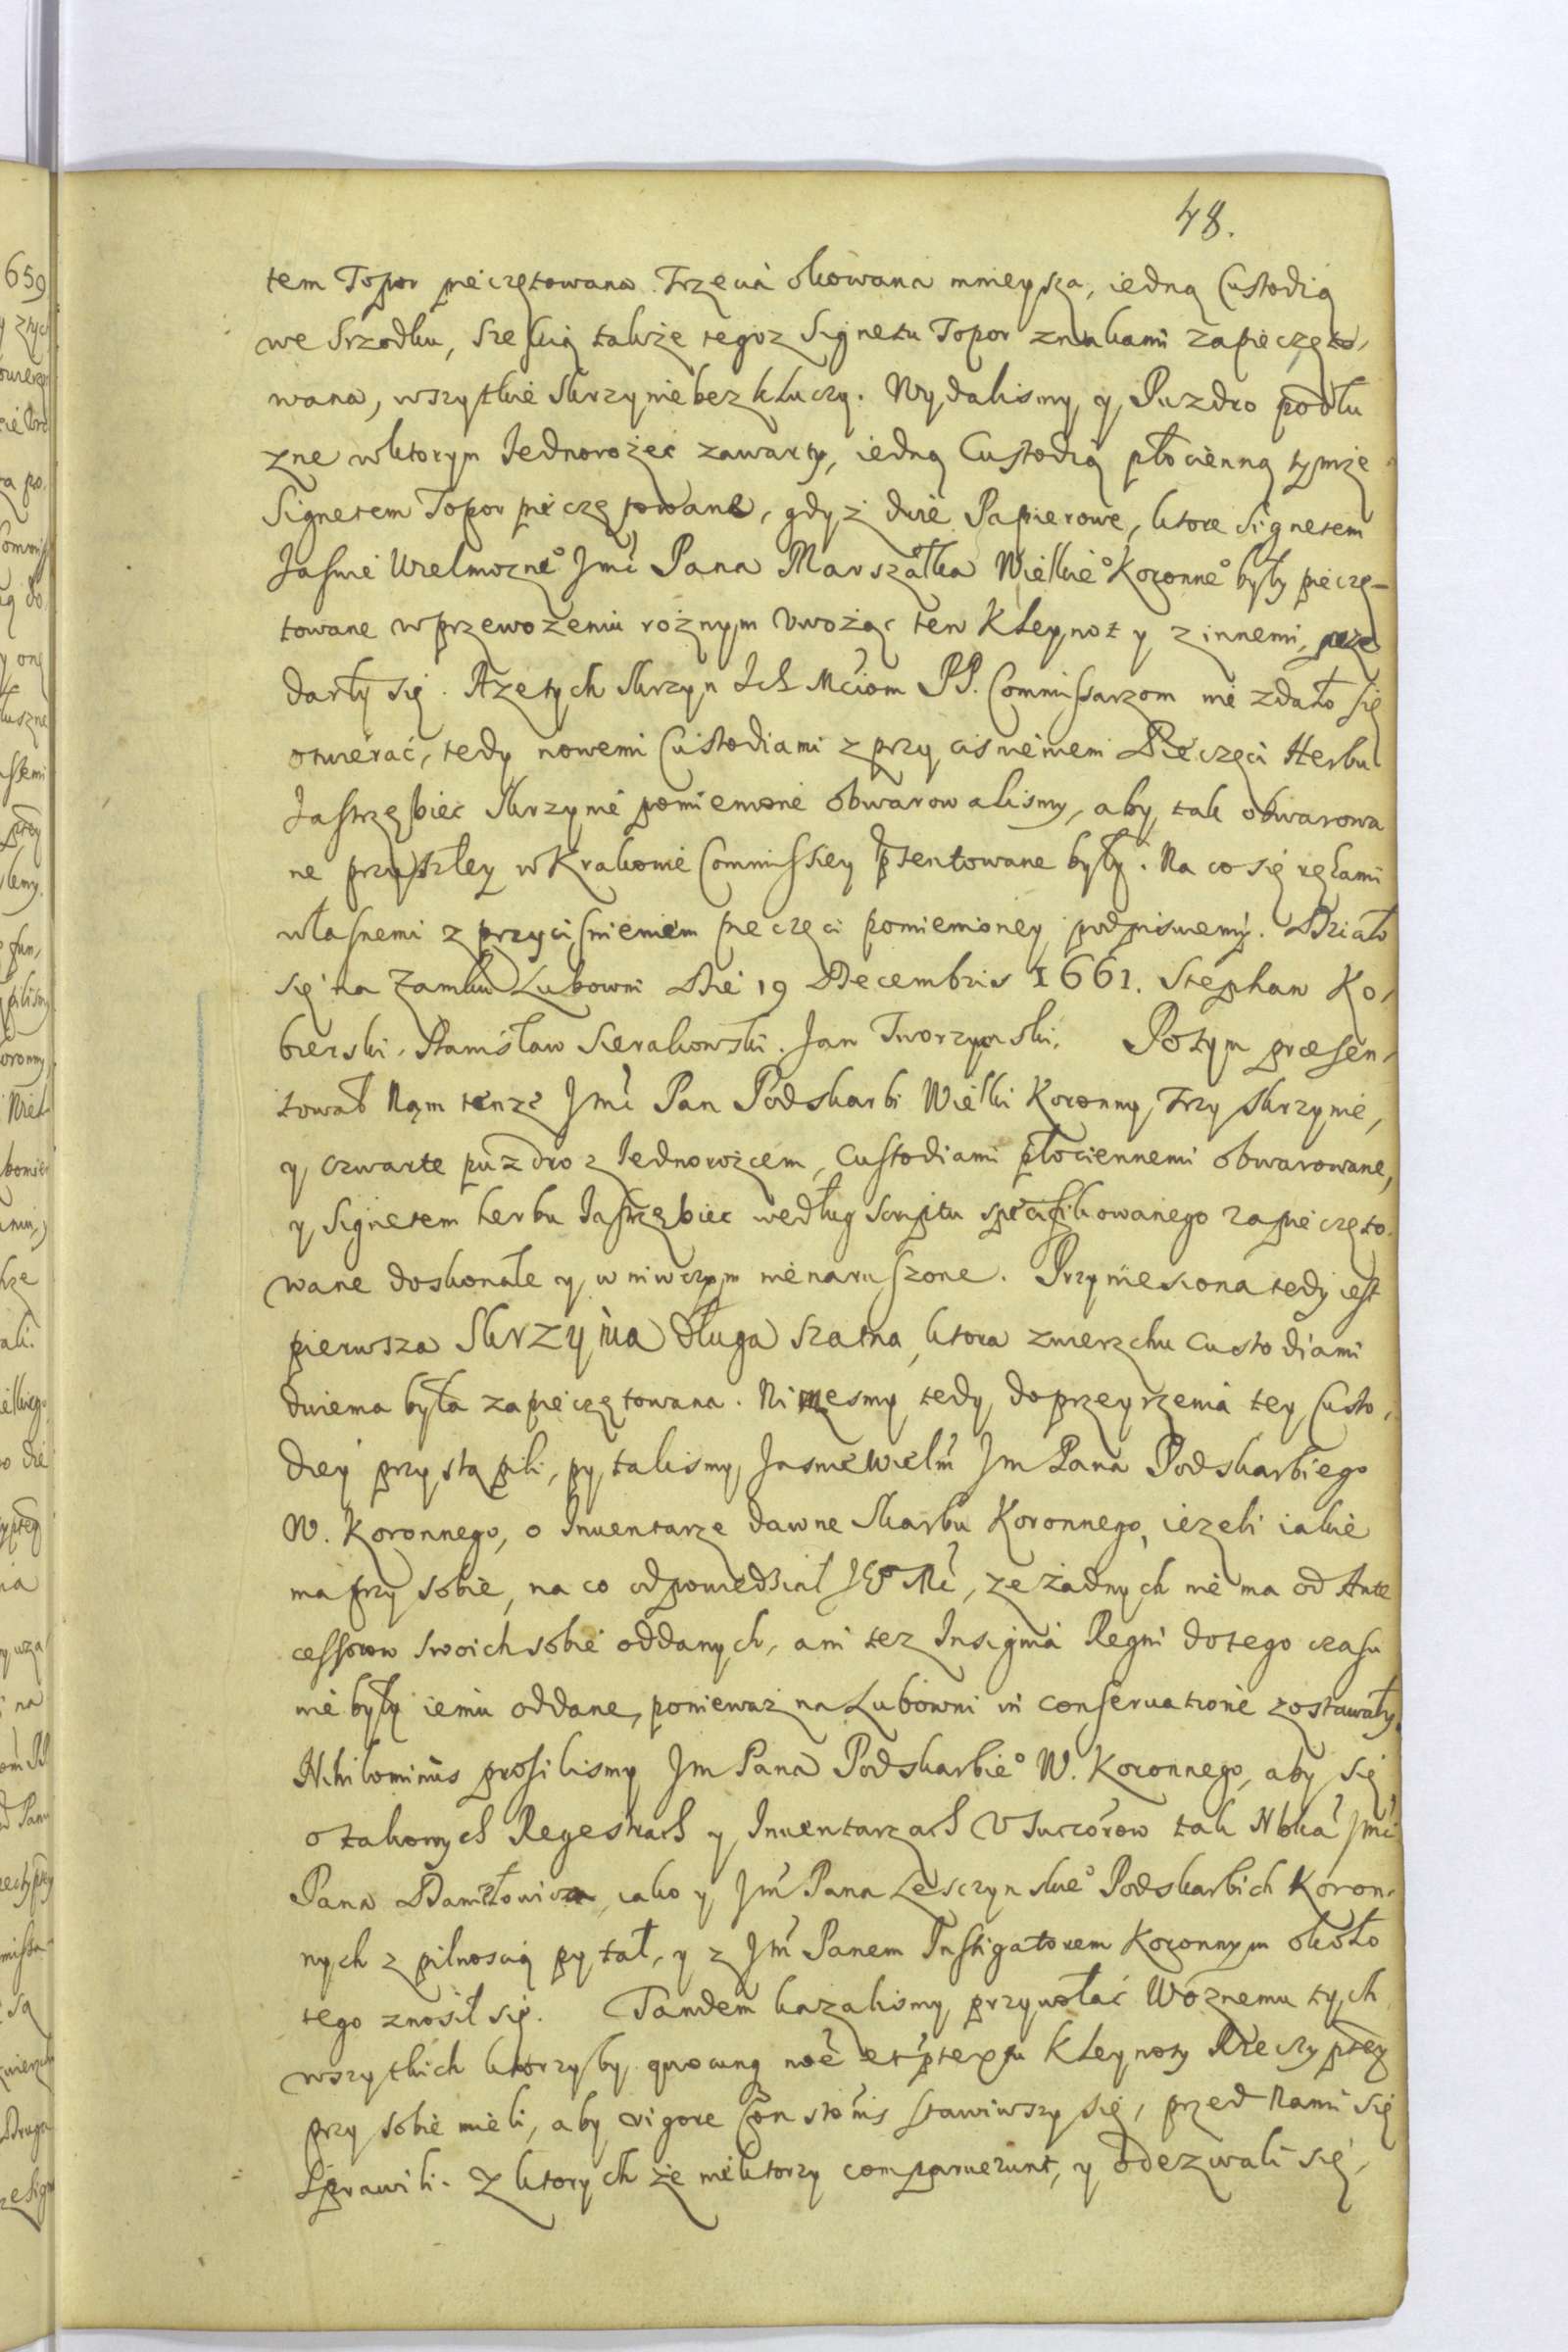 48.
tem Topor pieczętowana. Trzecia okowana mnieysza, iedną Custodią
we srzodku, sześcią także tegoz Signetu Topor znakami zapieczęto,
wana, wszytkie skrzynie bez kluczy. Wydalismy y Puzdro podłu
zne wktorym Iednorożec zawarty, iedną Custodią płocienną tymże
Signetem Topor pieczętowane, gdyż dwie Papierowe, ktore Signetem
Jasnie Wielmozne° Jmci Pana Marszałka Wielkie° Koronne° były pieczę-
towane wprzewożeniu rożnym Uwożąc ten Kleynot y zinnemi, prze
darły się. Azetych skrzyn Ich Mciom PP. Commissarzom nie zdało się
otwierać, tedy nowemi Custodiami z przyciśnieniem Pieczęci Herbu
Jastrzębiec skrzynie pomienione obwarowalismy, aby tak obwarowa
ne przyszłey w Krakowie Commissiey pzentowane były. Na co się rękami
własnemi z przyciśnieniem pieczęci pomienioney podpisuiemy. Działo
się na Zamku Lubowni Die 19 Decembris 1661. Stephan Ko,
bierski. Stanisław Sierakowski. Jan Tworzynski. Potym præsen,
tował Nąm tenze Jmci Pan Podskarbi Wielki Koronny, trzy skrzynie,
y czwarte puzdro z Iednorożcem, Custodiami płociennemi obwarowane,
y Signetem herbu Jastrzębiec według scriptu specifikowanego zapieczęto
wane doskonałe y w niwczym nienaruszone. Przyniesiona tedy iest
pierwsza Skrzynia długa szatna, ktora zwierzchu custodiami
dwiema była zapieczętowana. Nizesmy tedy do przeyrzenia tey Custo,
diey przystąpili, pytalismy Jasnie Wielm Jm Pana Podskarbiego
W. Koronnego, o Inuentarze dawne skarbu Koronnego, ieżeli iakie
ma przy sobie, na co odpowiedział JEo Mc, ze żadnych nie ma od Ante
cessorow swoich sobie oddanych, ani tez Insignia Regni dotego czasu
nie były iemu oddane, ponieważ na Lubowni in conseruatione zostawały.
Nihilominus prosilismy Jm Pana Podskarbie° W. Koronnego, aby się
o takowych Regestrach y Inuentarzach U Succorow tak Nbka Jmci
Pana Daniłowicza, iako y Jm Pana Lesczynskie° Podskarbich Koron,
nych z pilnoscią pytał, y z Jm Panem Instigatorem Koronnym około
tego znosił się. Tandem kazalismy przywołać Woznemu tych
wszytkich ktorzyby quocunq noe et ptextu Kleynoty Rzeczyptey
przy sobie mieli, aby vigore Constonis stawiwszy się, przed Nami się
sprawili. Z ktorych że niektorzy comparuerunt, y odezwali się,